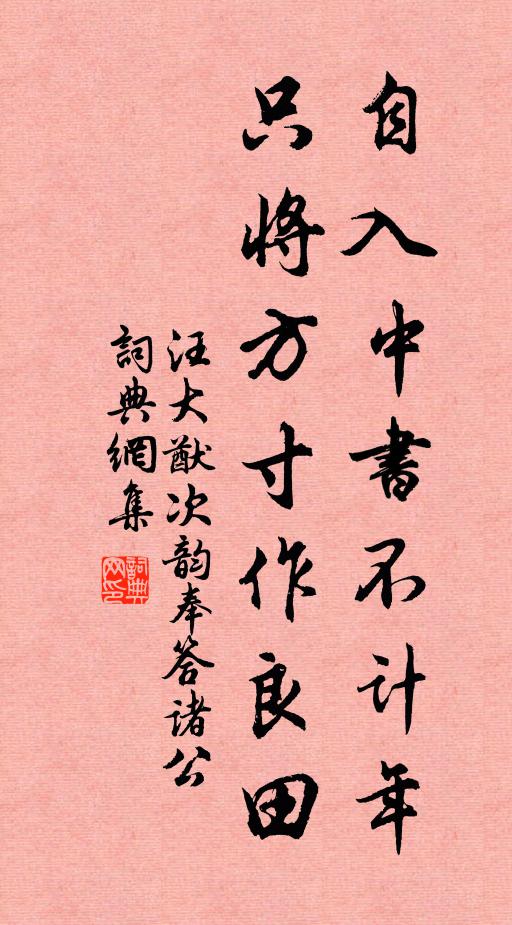 自入中書不計年
只將方寸作良田
汪大猷次韵奉答諸公
詞典網集
詞典网印